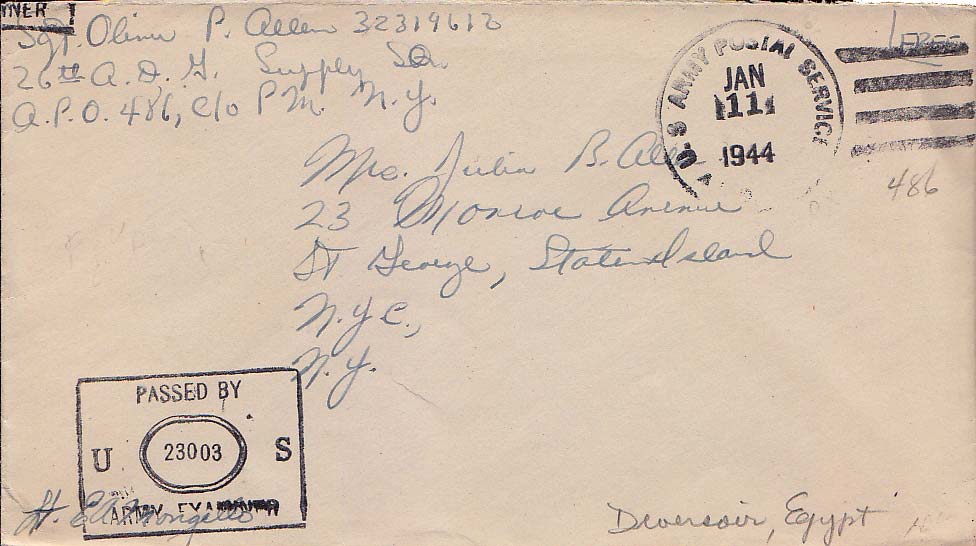 INER
Sgt. Oliver P. Allen 32319612
26th A.D.G. Supply Sq.
A.P.O. 486, c/o P.M. N.Y.
FREE
U.S ARMY POSTAL SERVICE
JAN
11
1944
486
Mrs. Julia B. Allen
23 Monroe Avenue
St George, Staten Island
N.Y.C.,
N.Y.
PASSED BY
U 23003 S
ARMY EXAMINER
Lt.
Deversoir, Egypt